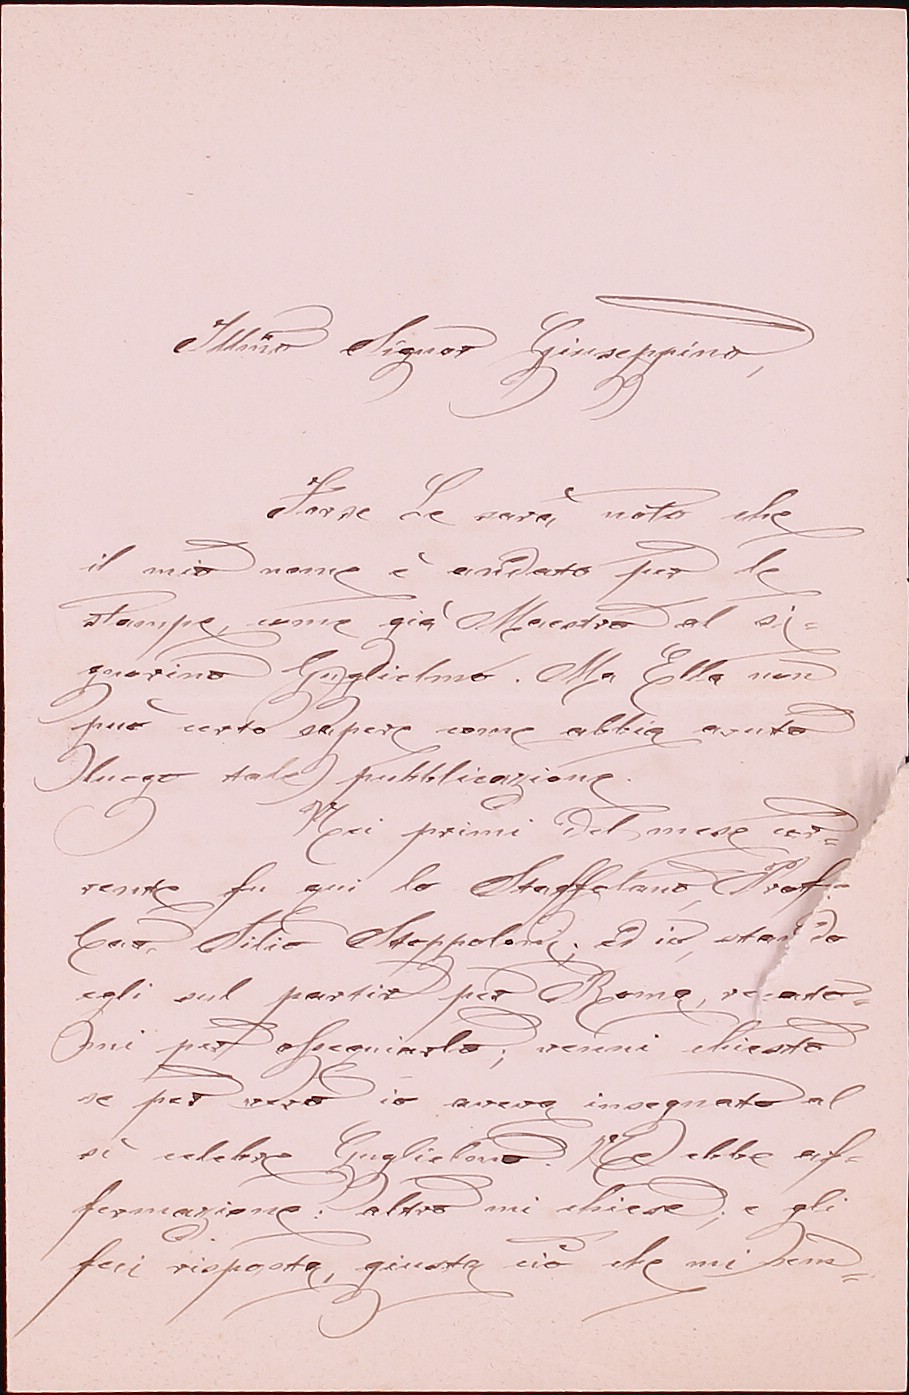 Illmo Signor Giuseppino,
Forse Le sarà noto che
il mio nome è andato per le
stampe, come già Maestro al si=
gnorino Guglielmo. Ma Ella non
può certo sapere come abbia avuto
luogo tale pubblicazione.
Nei primi del mese cor=
rente fu qui lo Staffolano, Prof.
Cav. Silio Stoppoloni; ed io, stando
egli sul partir per Roma, recato=
mi per ossequiarlo; venni chiesto
se per vero io aveva insegnato al
sì celebre Guglielmo. Ne ebbe af=
fermazione: altro mi chiese; e gli
feci risposta, giusta ciò che mi sem=